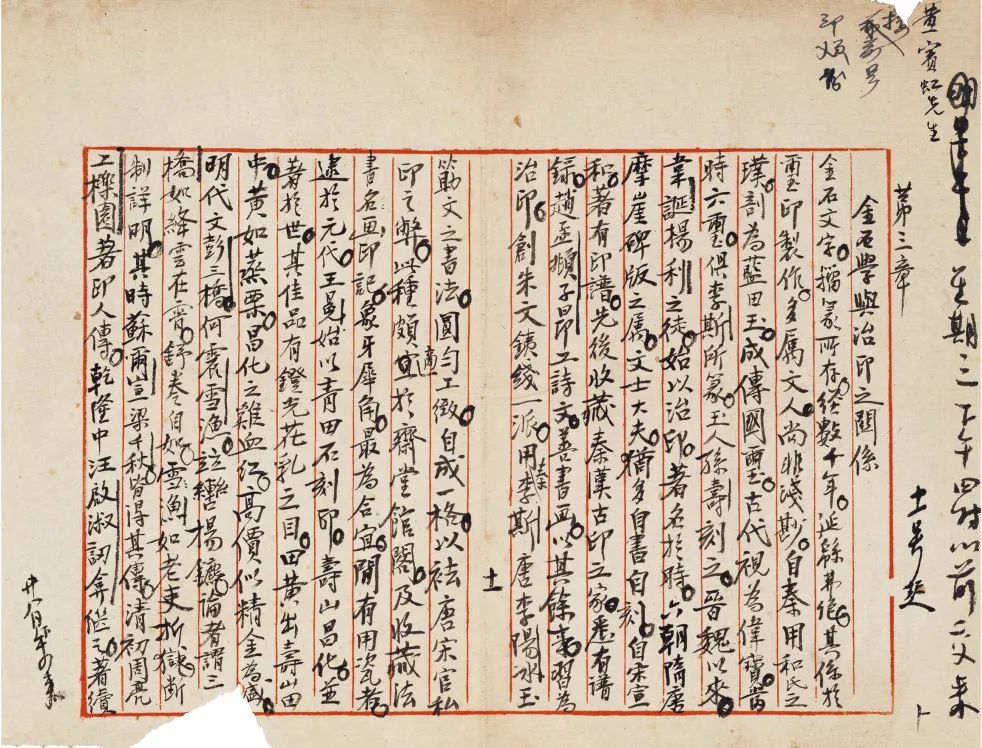 星期三下午四时以前二次来
黄宾虹先生
第三章
金石學與治印之關係
金石文字。籀篆所存。經數千年。延緜弗絕。其係於
璽印製作。多屬文人。尚非淺尠。自秦用和氏之
璞。刻為藍田玉。成傳國璽。古代視為偉寶。當
時六璽。俱李斯所篆。玉人孫壽刻之。晉魏以來。
韋誕楊利之徒。始以治印。著名於時。六朝隋唐
摩崖碑版之屬。文士大夫。猶多自書自刻。自宋宣
和著有印譜。先後收藏秦漢古印之家。悉有譜
錄。趙孟頫子昂。工詩文。善書画。以其餘事。習為
治印。創朱文鐵綫一派。用秦李斯唐李陽冰玉
十一
筯文之書法。圓勻工緻。自成一格。以袪唐宋官私
印之弊。此種頗適宜於齋堂館閣。及收藏法
書名画印記。象牙犀角。最為合宜。間有用瓷者。
逮於元代。王冕始以青田石刻印。壽山昌化並
著於世。其佳品有鐙光花乳之目。田黃出壽山田
中。黃如蒸栗。昌化之雞血紅。高價似精金為
明代文彭三橋。何震雪漁。竝轡揚鑣。論者謂三
橋如絳雲在霄。舒卷自如。雪漁如老吏折獄。斷
制詳明。其時蘇爾宣梁千秋。皆得其傳。清初周亮
工櫟園著印人傳。乾隆中汪啟淑訒菴繼之。著續